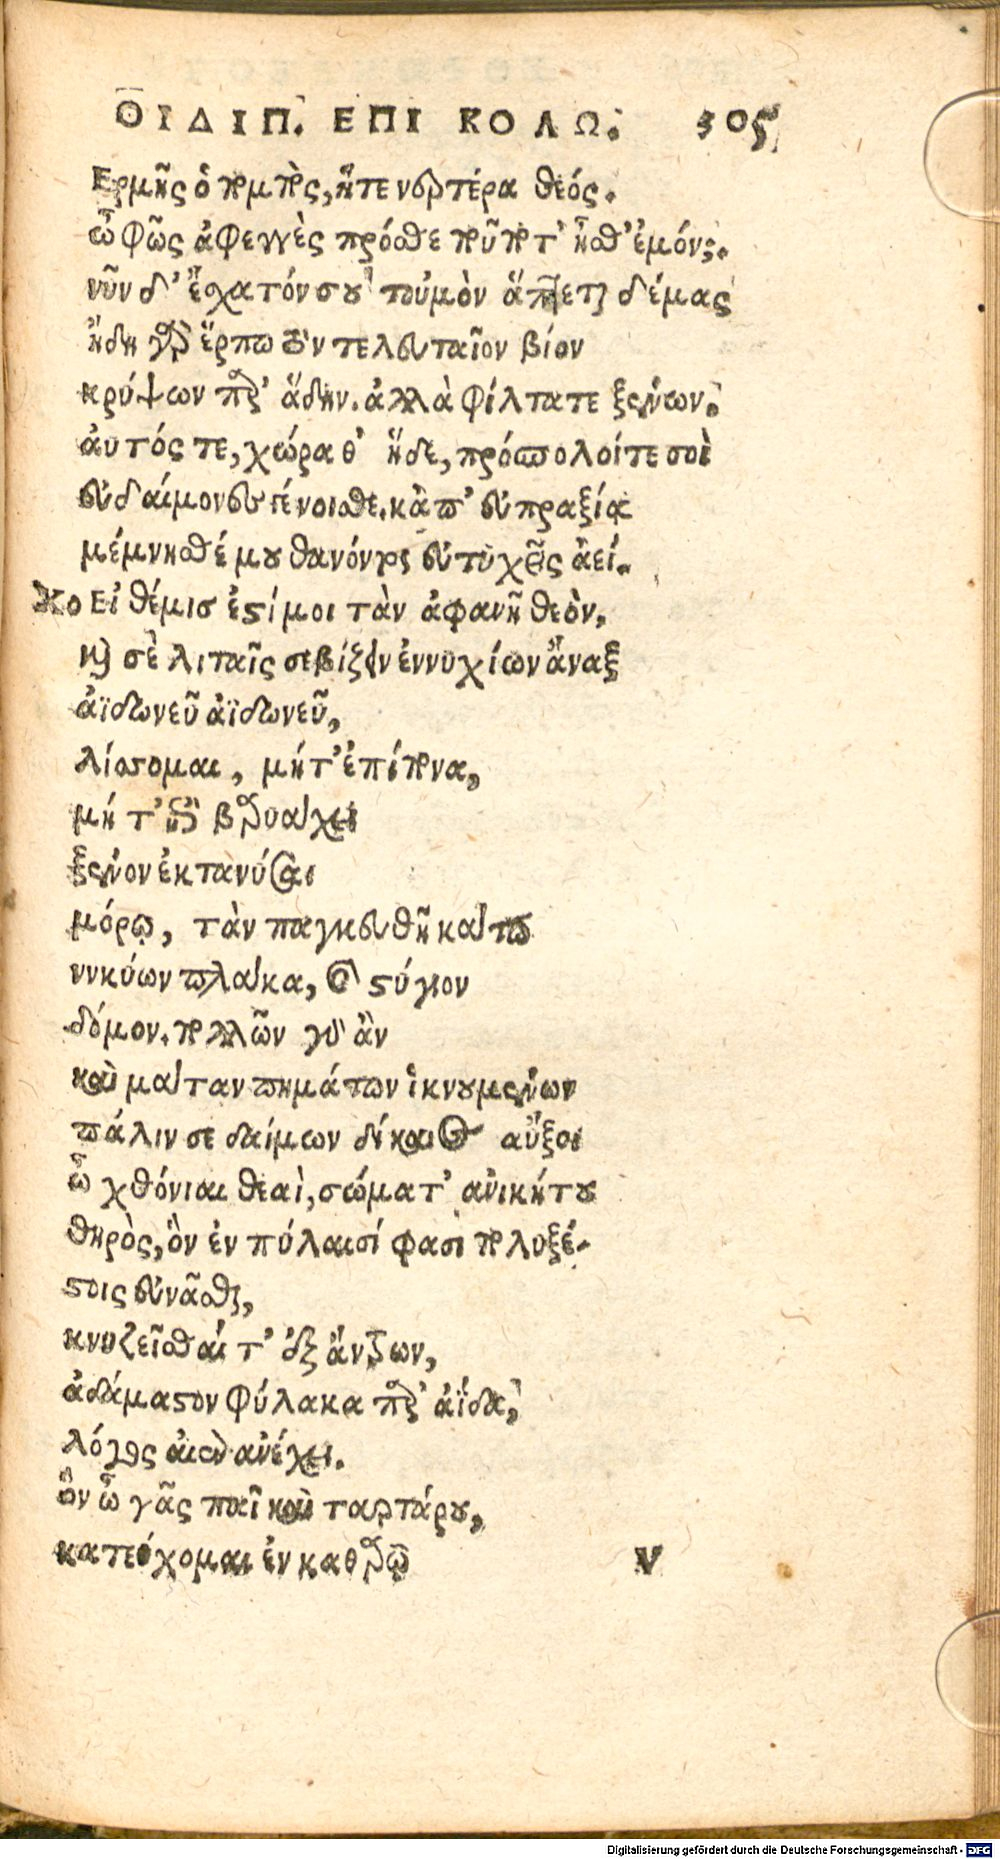 ΟΙΔΙΠ. ΕΠΙ ΚΟΛΩ. 305
Ερμῆς ὁ πομπὸς, ἥτε νερτέρα θεός.
ὦ φῶς ἀφεγγὲς πρόσθε ποῦ ποτ' ἦσθ' ἐμόν;.
νῦν δ' ἔσχατόν σου τοὐμὸν ἅπτεται δέμας
ἤδη γὰρ ἕρπω τὸν τελευταῖον βίον
κρύψων παρ' ἅδην. ἀλλὰ φίλτατε ξένων.
ἀυτός τε, χώρα θ' ἥδε, πρόσπολοί τε σοὶ
εὐδαίμονες γένοισθε. κἀπ' εὐπραξίᾳ
μέμνησθέ μου θανόντος εὐτυχεῖς ἀεί.
Χο Εἰ θέμισ ἐστί μοι τὰν ἀφανῆ θεὸν,
καὶ σὲ λιταῖς σεβίζειν ἐννυχίων ἄναξ
ἀϊδωνεῦ ἀϊδωνεῦ,
λίσσομαι, μήτ' ἐπίπονα,
μήτ' ἐπὶ βαρυαχεῖ
ξένον ἐκτανύσαι
μόρῳ, τὰν παγκευθῆ κάτω
ννκύων πλάκα, καὶ στύγιον
δόμον. πολλῶν γὰρ ἂν
καὶ μάταν πημάτων ἱκνουμένων
πάλιν σε δαίμων δίκαιος αὔξοι
ὦ χθόνιαι θεαὶ, σώματ' ἀνικήτου
θηρὸς, ὃν ἐν πύλαισί φασι πολυξέ-
στοις εὐνᾶσθαι,
κνυζεῖσθαί τ' ἐξ ἄντρων,
ἀδάμαστον φύλακα παρ' ἀΐδα,
λόγος αἰὲν ἀνέχει.
ὃν ὦ γᾶς παῖ καὶ ταρτάρου,
κατεύχομαι ἐν καθαρῷ
V
Digitalisierung gefördert durch die Deutsche Forschungsgemeinschaft - DFG